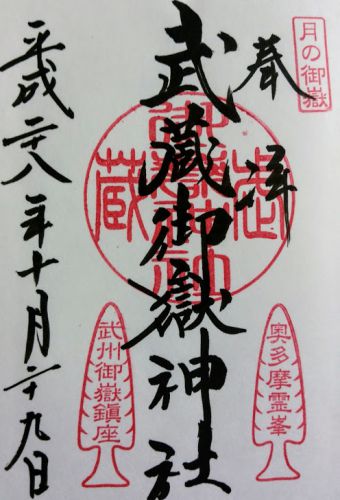 月の御嶽
奉拝
武蔵御嶽神社
奥多摩霊峯
武州御嶽鎮座
平成二十八年十月二十九日